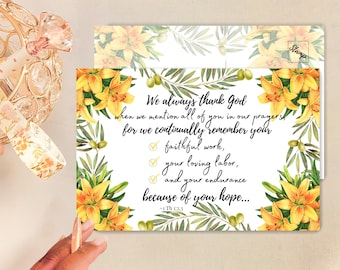 We always thank God
when we mention all of you in our prayers
for we continually remember your
faithful work,
your loving labor,
and your endurance
because of your hope...